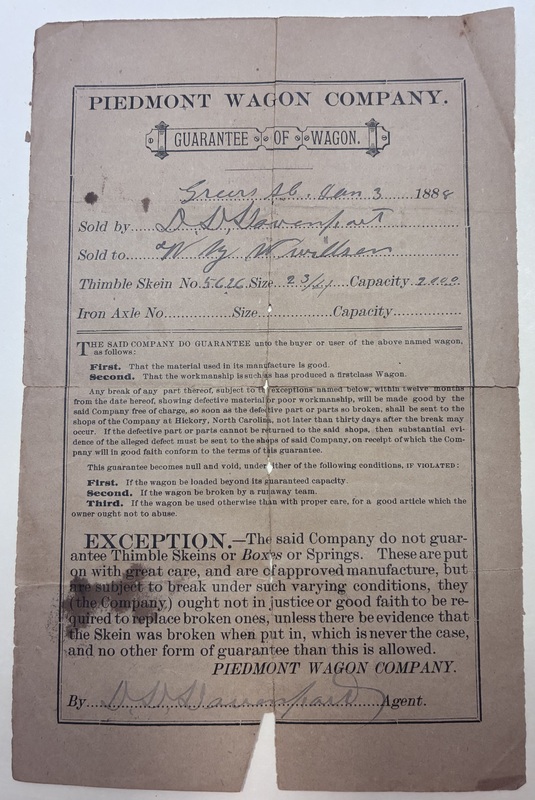 PIEDMONT WAGON COMPANY.
GUARANTEE OF WAGON.
Greers S.C. Jan 3 1888
Sold by D D Davenport
Sold to W
Thimble Skein No. 5626 Size 2 3/4 Capacity 2000
Iron Axle No. Size Capacity
THE SAID COMPANY DO GUARANTEE unto the buyer or user of the above named wagon,
as follows:
First. That the material used in its manufacture is good.
Second. That the workmanship is such as has produced a firstclass Wagon.
Any break of any part thereof, subject to the exceptions named below, within twelve months
from the date hereof, showing defective material or poor workmanship, will be made good by the
said Company free of charge, so soon as the defective part or parts so broken, shall be sent to the
shops of the Company at Hickory, North Carolina, not later than thirty days after the break may
occur. If the defective part or parts cannot be returned to the said shops, then substantial evi-
dence of the alleged defect must be sent to the shops of said Company, on receipt of which the Com-
pany will in good faith conform to the terms of this guarantee.
This guarantee becomes null and void, under either of the following conditions, IF VIOLATED:
First. If the wagon be loaded beyond its guaranteed capacity.
Second. If the wagon be broken by a runaway team.
Third. If the wagon be used otherwise than with proper care, for a good article which the
owner ought not to abuse.
EXCEPTION.—The said Company do not guar-
antee Thimble Skeins or Boxes or Springs. These are put
on with great care, and are of approved manufacture, but
are subject to break under such varying conditions, they
(the Company) ought not in justice or good faith to be re-
quired to replace broken ones, unless there be evidence that
the Skein was broken when put in, which is never the case,
and no other form of guarantee than this is allowed.
PIEDMONT WAGON COMPANY.
By D D Davenport Agent.